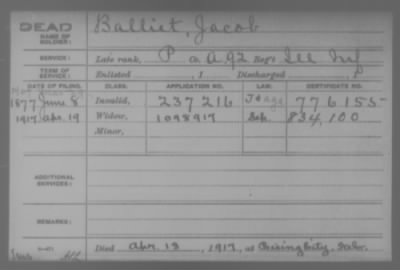 DEAD
NAME OF SOLDIER: Balliet, Jacob
SERVICE: Late rank, P Co. A, 92 Reg't Ill Inf
TERM OF SERVICE: Enlisted , 1 Discharged , 1
DATE OF FILING. CLASS. APPLICATION NO. LAW. CERTIFICATE NO.
1877 June 8 Invalid, 237 216 776155
1917, apr. 19 Widow, 1098917 834,100
Minor,
ADDITIONAL SERVICES:
REMARKS:
Died Apr. 13, 1917, at Rising City, Nebr.